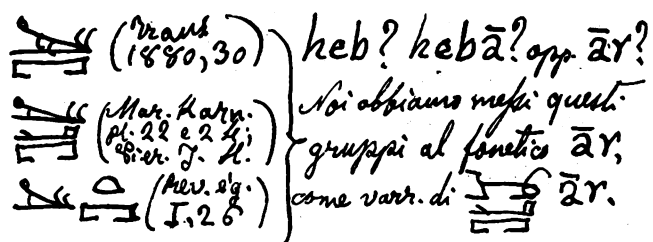 (Trans
1880, 30)
(Mar. Karn.
pl. 22 e 24;
(Rev. ég.
I, 26
heb? hebā? opp. ār?
Noi abbiamo messi questi
gruppi al fonetico ār,
come varr. di ār.